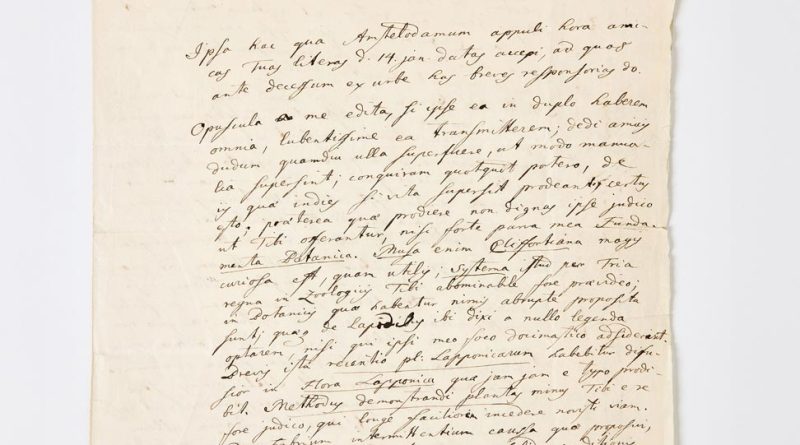 Ipsa hac qua Amstelodamum appuli hora ami-
cas Tuas literas d. 14. jan. datas accepi, ad quas
ante decessum ex urbe has breves responsorias do.
Opuscula a me edita, si ipse ea in duplo haberem
omnia, lubentissime ea transmitterem; dedi amicis
dudum quamdiu ulla superfuere, ut modo manua-
lia supersint; conquiram quotquot potero, de
iis quæ indies si vita supersit prodeant, certus
esto; præterea quæ prodiere non dignas ipse judico
ut Tibi offerantur, nisi forte parva mea Funda-
menta Botanica. Musa enim Cliffortiana magis
curiosa est, quam utilis; Systema istud per Tria
regna in Zoologicis Tibi abominabile fore prævideo;
in Botanicis quæ habentur nimis abrupte proposita
sunt; quæ de Lapidibus ibi dixi a nullo legenda
optarem, nisi qui ipsi meo foco docimastico adsiderant.
Brevis ista recensio pl: Lapponicarum habebitur diffu-
sior in Flora Lapponica quæ jam jam e typo prodi-
bit. Methodus demonstrandi plantas minus Tibi e re
fore judico, qui longe faciliora incedere novisti viam.
intermittentium caussa quæ proposui,